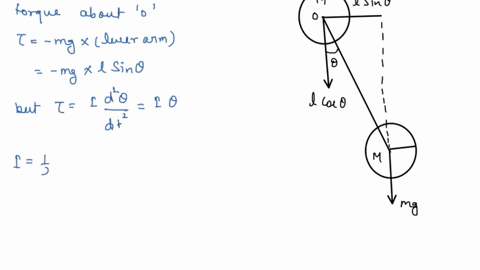 torque about 'O'
τ = -mg × (lever arm)
= -mg × l Sinθ
but τ = I d²θ/dt² = I θ
I = 1/2
O
l Sinθ
θ
l Cosθ
M
mg